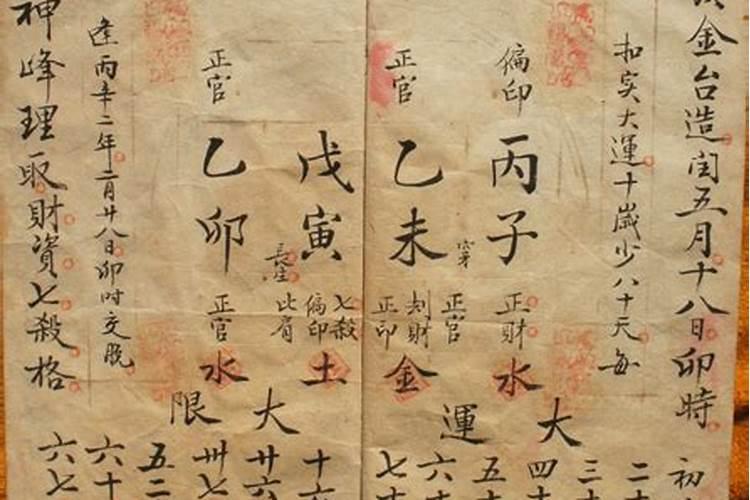 金台造闰五月十八日卯時
扣实大運十歲少八十天每
偏印
丙子
正財
水
正官
乙未
穿
正官
刦財
正印
金
戊寅
長生
七殺
偏印
比肩
土
正官
乙卯
正官
水
逢丙辛二年二月廿八日卯时交脱
神峰理取財資七殺格
大運
初
二十
三十
四十
五十
六十
七十
大限
十六
廿六
卅七
五二
六十
六七